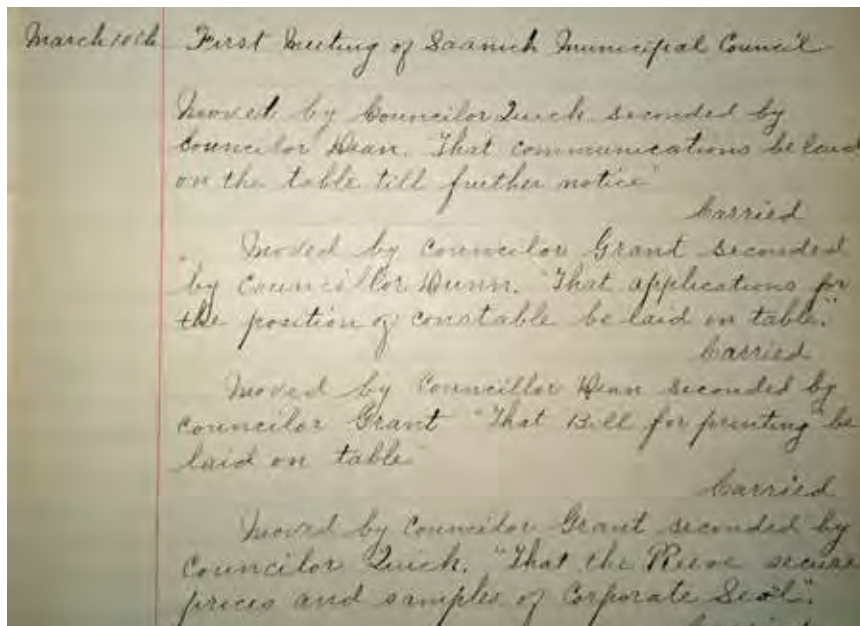 March 10th First Meeting of Saanich Municipal Council
Moved by Councilor Quick seconded by
Councilor Dean. "That communications be laid
on the table till further notice"
Carried
Moved by Councilor Grant seconded
by Councillor Dunn. "That applications for
the position of constable be laid on table."
Carried
Moved by Councillor Dean seconded by
Councilor Grant "That Bill for printing" be
laid on table
Carried
Moved by Councilor Grant seconded by
Councilor Quick. "That the Reeve secure
prices and samples of Corporate Seal".
Carried